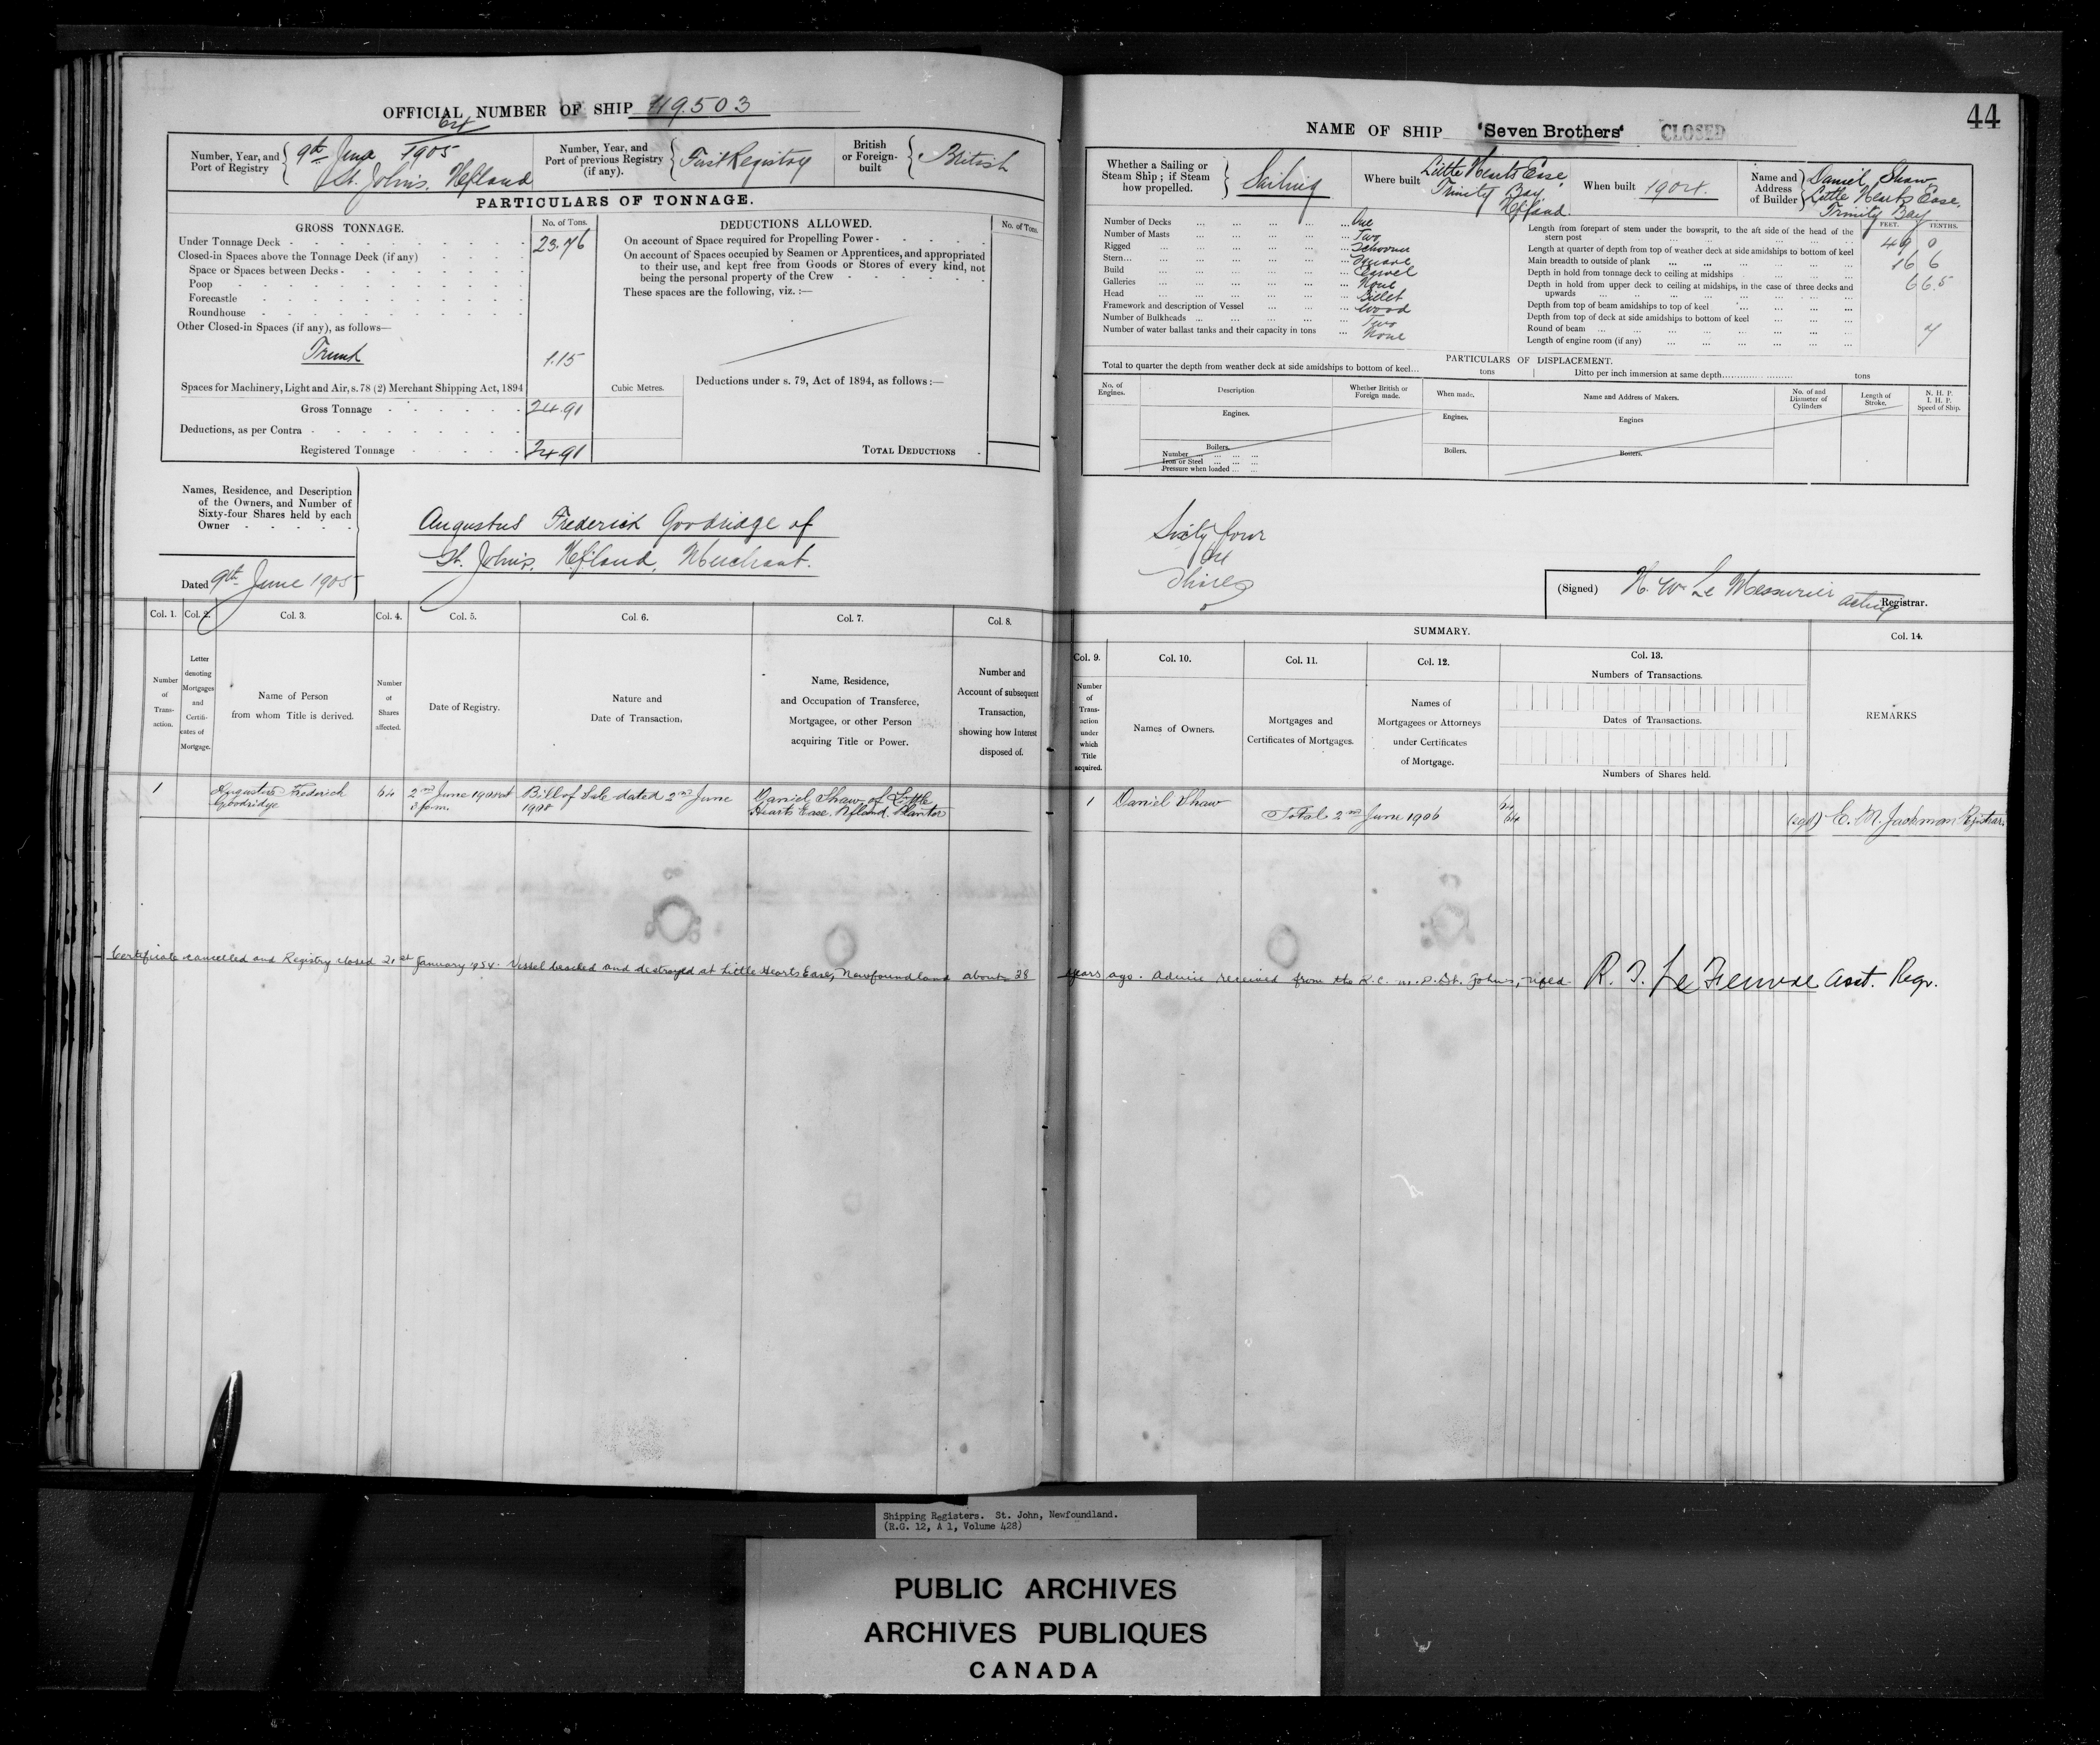 OFFICIAL NUMBER OF SHIP 119.503
64
Number, Year, and Port of Registry
9th June 1905
St. John's. Nfland
Number, Year, and Port of previous Registry (if any).
First Registry
British or Foreign-built
British
PARTICULARS OF TONNAGE.
GROSS TONNAGE.
No. of Tons.
Under Tonnage Deck 23.76
Closed-in Spaces above the Tonnage Deck (if any)
Space or Spaces between Decks
Poop
Forecastle
Roundhouse
Other Closed-in Spaces (if any), as follows—
Trunk 1.15
Spaces for Machinery, Light and Air, s. 78 (2) Merchant Shipping Act, 1894
Gross Tonnage 24.91
Deductions, as per Contra
Registered Tonnage 24.91
DEDUCTIONS ALLOWED.
No. of Tons.
On account of Space required for Propelling Power
On account of Spaces occupied by Seamen or Apprentices, and appropriated
to their use, and kept free from Goods or Stores of every kind, not
being the personal property of the Crew
These spaces are the following, viz. :—
Cubic Metres.
Deductions under s. 79, Act of 1894, as follows :—
TOTAL DEDUCTIONS
Names, Residence, and Description
of the Owners, and Number of
Sixty-four Shares held by each
Owner
Augustus Frederick Goodridge of
St. John's. Nfland, Merchant.
Dated 9th June 1905
Col. 1. Col. 2. Col. 3. Col. 4. Col. 5. Col. 6. Col. 7. Col. 8.
Number of Trans-action.
Letter denoting Mortgages and Certifi-cates of Mortgage.
Name of Person from whom Title is derived.
Number of Shares affected.
Date of Registry.
Nature and Date of Transaction.
Name, Residence, and Occupation of Transferee, Mortgagee, or other Person acquiring Title or Power.
Number and Account of subsequent Transaction, showing how Interest disposed of.
1 Augustus Frederick Goodridge 64
2nd June 1908 at 3 p.m.
Bill of Sale dated 2nd June 1908
Daniel Shaw of Little Hearts Ease. Nfland. Planter
Certificate cancelled and Registry closed 21st January 1954. Vessel beached and destroyed at Little Hearts Ease, Newfoundland about 38
44
NAME OF SHIP "Seven Brothers" CLOSED
Whether a Sailing or Steam Ship ; if Steam how propelled.
Sailing
Where built
Little Hearts Ease,
Trinity Bay
Nfland.
When built 1904.
Name and Address of Builder
Daniel Shaw
Little Hearts Ease.
Trinity Bay
Number of Decks One
Number of Masts Two
Rigged Schooner
Stern Square
Build Carvel
Galleries None
Head Billet
Framework and description of Vessel Wood
Number of Bulkheads Two
Number of water ballast tanks and their capacity in tons None
FEET. TENTHS.
Length from forepart of stem under the bowsprit, to the aft side of the head of the
stern post 49 0
Length at quarter of depth from top of weather deck at side amidships to bottom of keel
Main breadth to outside of plank 16 6
Depth in hold from tonnage deck to ceiling at midships 6 6.5
Depth in hold from upper deck to ceiling at midships, in the case of three decks and
upwards
Depth from top of beam amidships to top of keel
Depth from top of deck at side amidships to bottom of keel
Round of beam 7
Length of engine room (if any)
PARTICULARS OF DISPLACEMENT.
Total to quarter the depth from weather deck at side amidships to bottom of keel... tons
Ditto per inch immersion at same depth tons
No. of Engines.
Description
Whether British or Foreign made.
When made.
Name and Address of Makers.
No. of and Diameter of Cylinders
Length of Stroke.
N. H. P.
I. H. P.
Speed of Ship.
Engines.
Engines.
Engines
Boilers.
Number
Iron or Steel
Pressure when loaded
Boilers.
Boilers.
Sixty four
64
Shares
(Signed) H. W. Le Messurier
acting Registrar.
SUMMARY.
Col. 9. Col. 10. Col. 11. Col. 12. Col. 13. Col. 14.
Number of Trans-action under which Title acquired.
Names of Owners.
Mortgages and Certificates of Mortgages.
Names of Mortgagees or Attorneys under Certificates of Mortgage.
Numbers of Transactions.
Dates of Transactions.
Numbers of Shares held.
REMARKS
1 Daniel Shaw
Total 2nd June 1906
64
64
(sgd) E. M. Jackman Registrar.
years ago. Advice received from the R.C.M.P. St. John's, Nfld. R. J. Le Feuvre Asst. Regr.
Shipping Registers. St. John, Newfoundland.
(R.G. 12, A 1, Volume 428)
PUBLIC ARCHIVES
ARCHIVES PUBLIQUES
CANADA